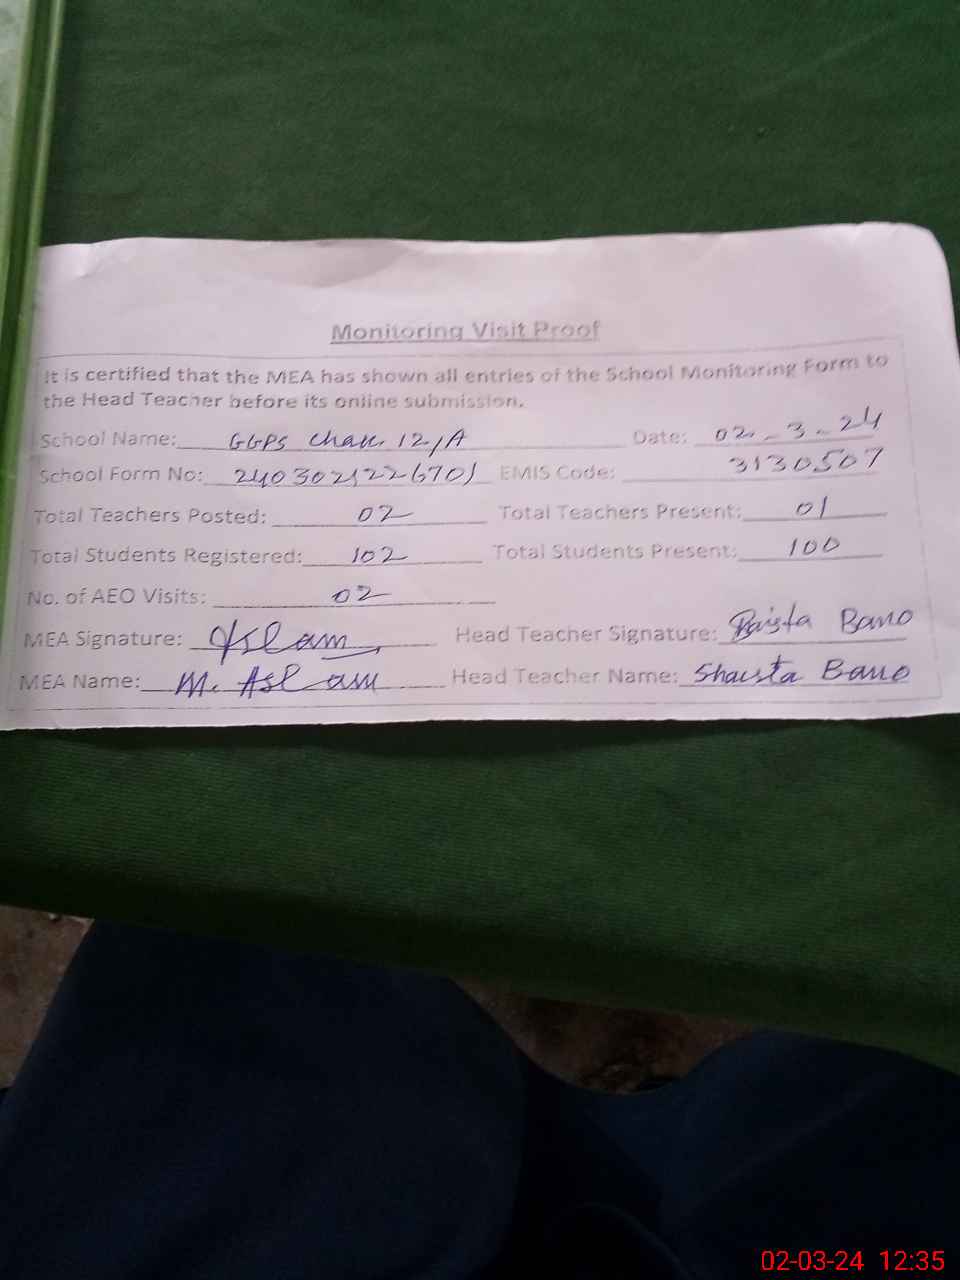 Monitoring Visit Proof
It is certified that the MEA has shown all entries of the School Monitoring Form to
the Head Teacher before its online submission.
School Name: GGPS Chak 12/A Date: 02-3-24
School Form No: 2403021226701 EMIS Code: 3130507
Total Teachers Posted: 02 Total Teachers Present: 01
Total Students Registered: 102 Total Students Present: 100
No. of AEO Visits: 02
MEA Signature: Aslam Head Teacher Signature: Bano
MEA Name: M. Aslam Head Teacher Name: Shaista Bano
02-03-24 12:35